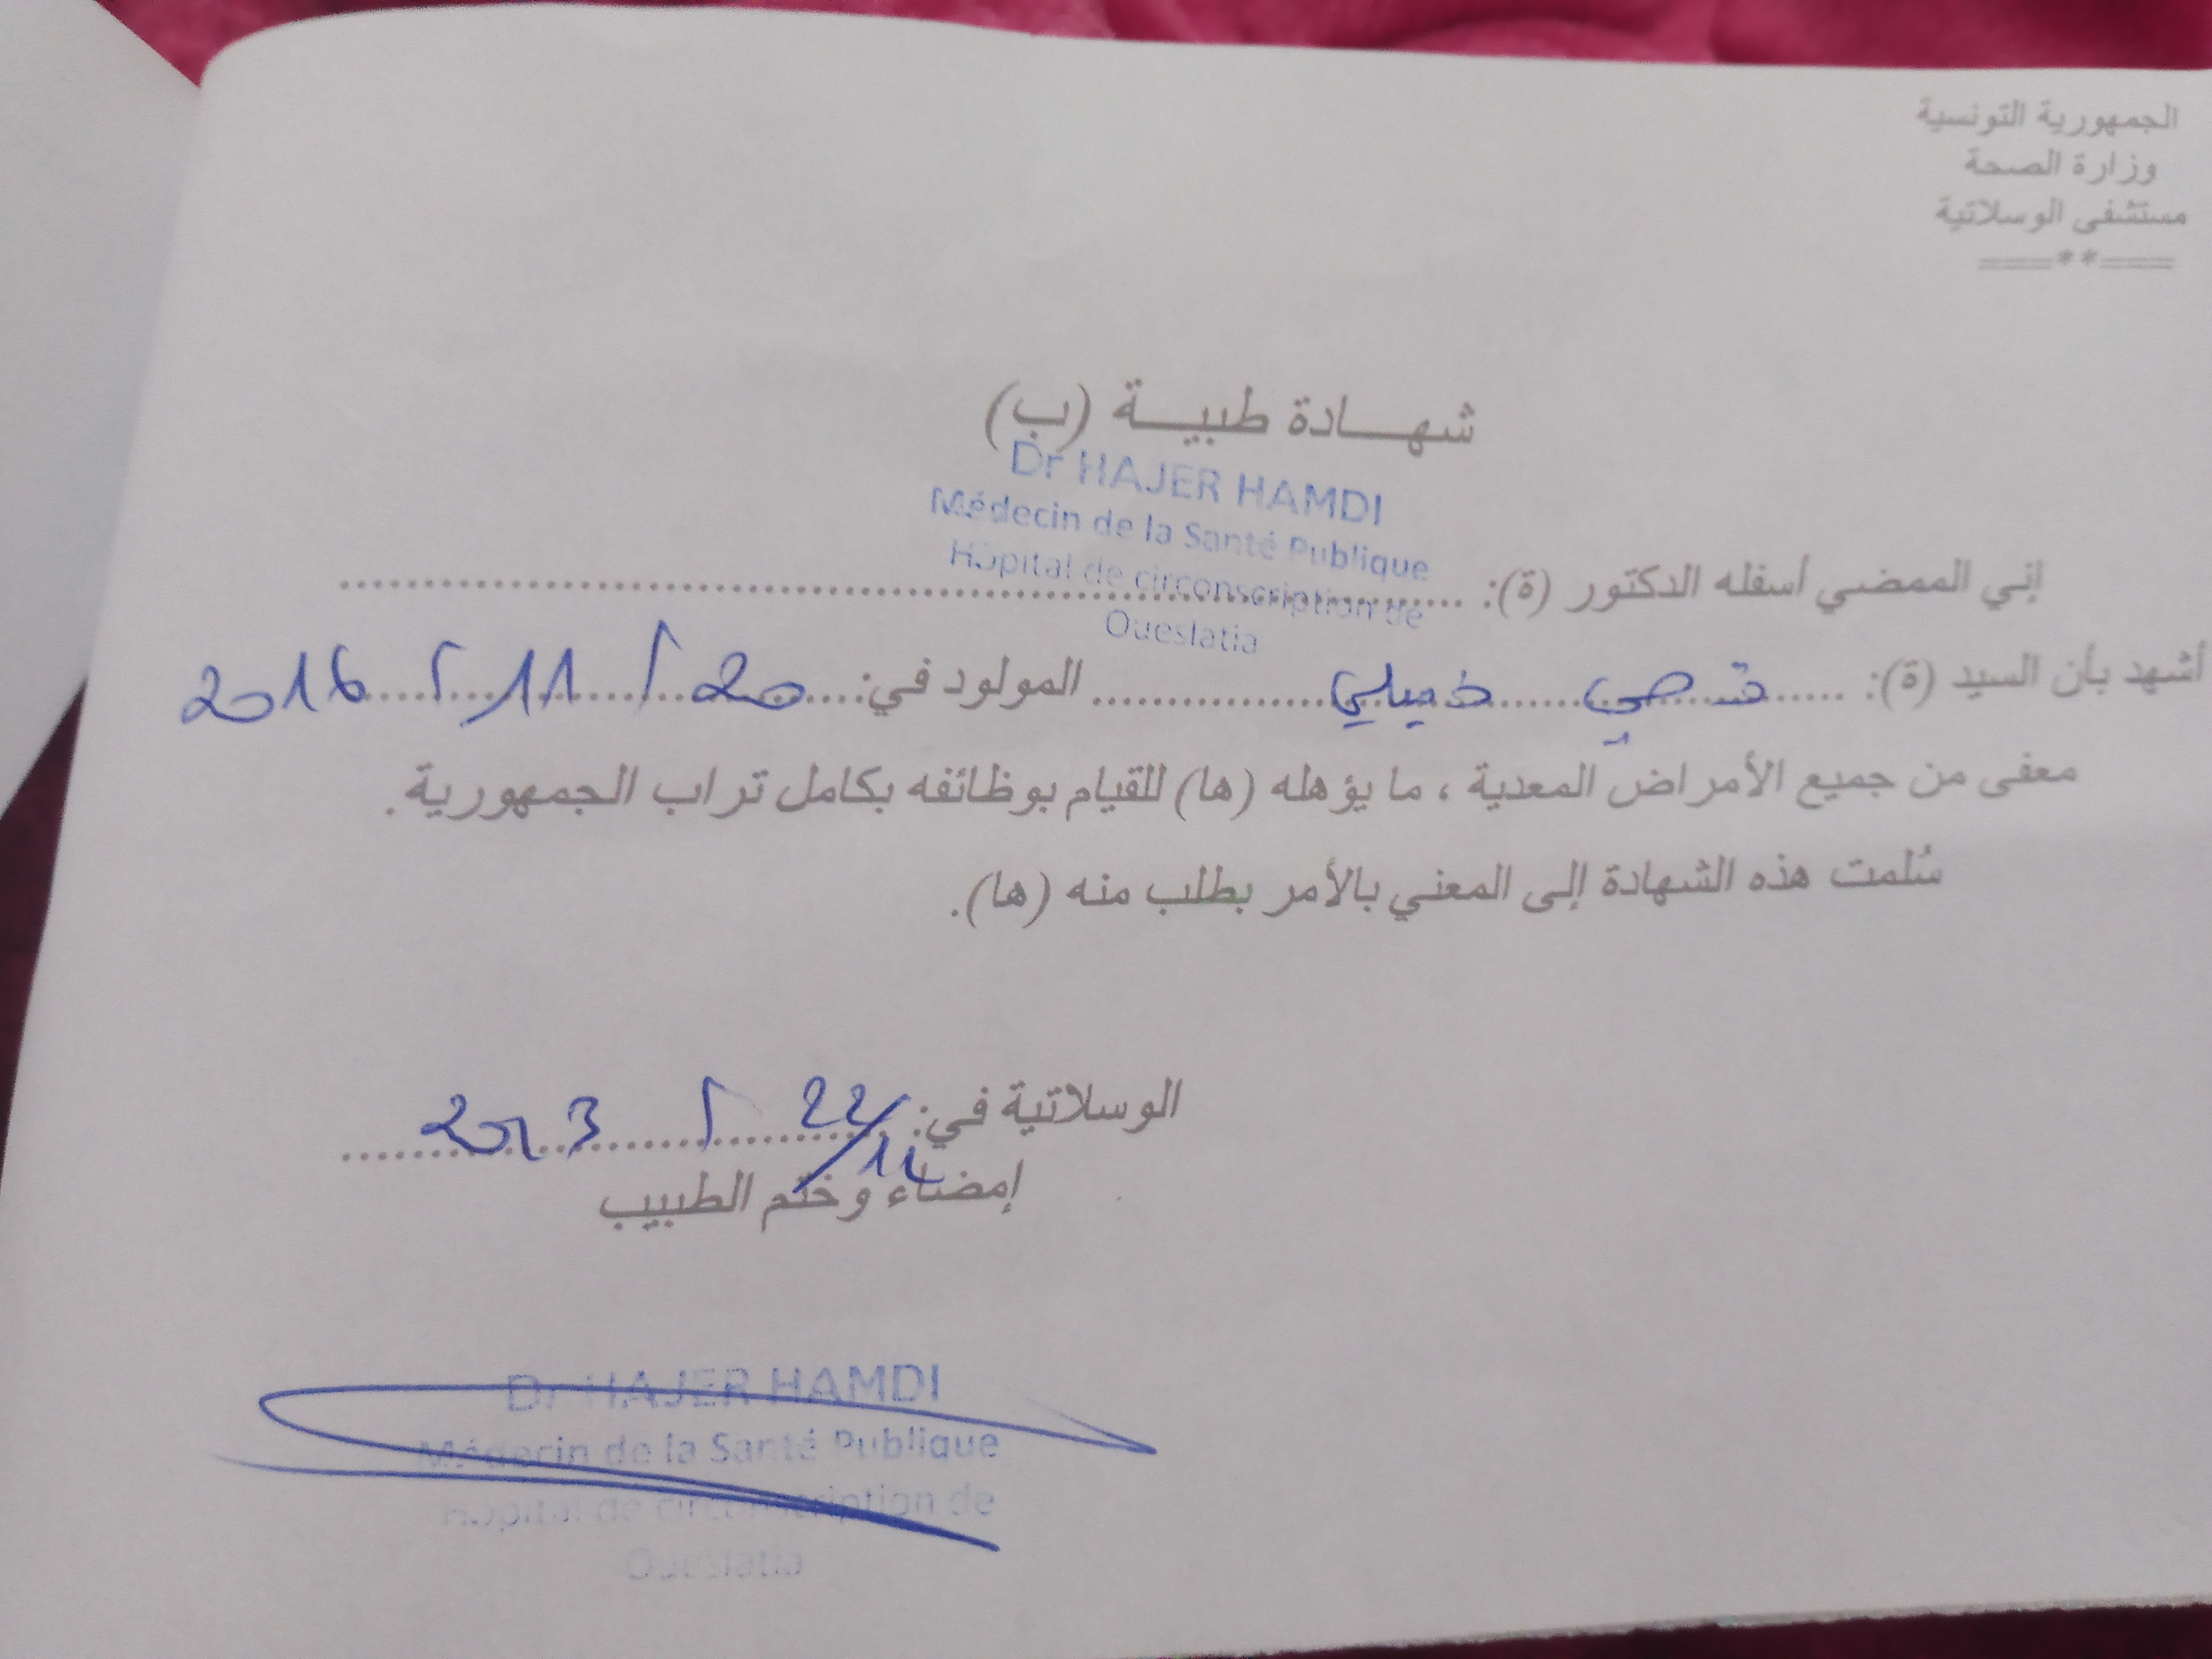 الجمهورية التونسية
وزارة الصحة
مستشفى الوسلاتية
===**===
شهـــادة طبيـــة (ب)
Dr HAJER HAMDI
Médecin de la Santé Publique
Hôpital de circonscription de
Oueslatia
إني الممضي أسفله الدكتور (ة): ........................................
أشهد بأن السيد (ة): ........................ المولود في: 20 / 11 / 2016
معفى من جميع الأمراض المعدية ، ما يؤهله (ها) للقيام بوظائفه بكامل تراب الجمهورية.
سُلمت هذه الشهادة إلى المعني بالأمر بطلب منه (ها).
الوسلاتية في: 22 / / 2023
إمضاء وختم الطبيب
Dr HAJER HAMDI
Médecin de la Santé Publique
Hôpital de circonscription de
Oueslatia